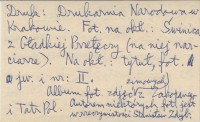 Druk: Drukarnia Narodowa w
Krakowie. Fot. na okł.: Świnica
z Gładkiej Przełęczy (na niej nar-
ciarze). Na okł. tytuł, fot.
jw. i nr: II.
zimowych
Album fot. zdjęć z Zakopanego
i Tatr Pol. Autorem niektórych fot. jest
w rzeczywistości Stanisław Zdyb.